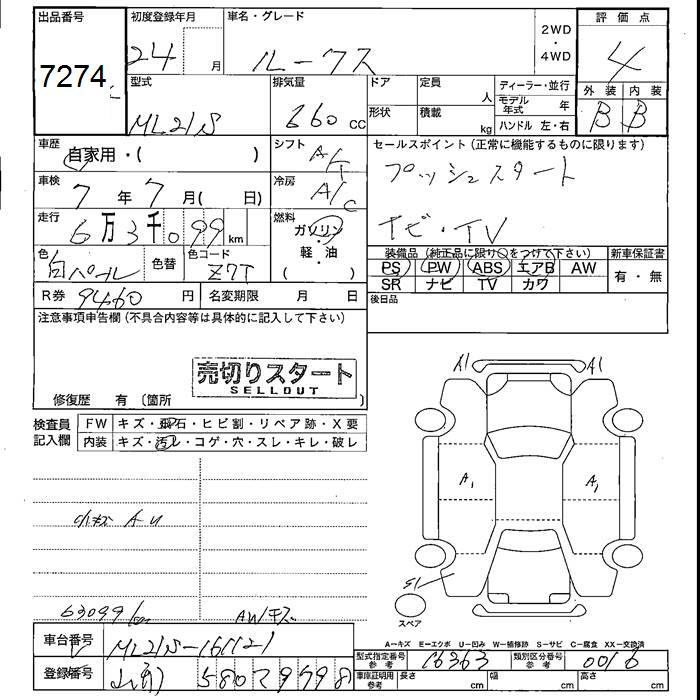 出品番号 初度登録年月 車名・グレード 評価点
7274 24 月 ルークス 2WD・4WD 4
型式 排気量 ドア 定員 人 ディーラー・並行 外装 内装
ML21S 660 cc 形状 積載 kg モデル年式 年 B B
ハンドル 左・右
車歴 自家用・( ) シフト A/T セールスポイント (正常に機能するものに限ります)
車検 7年 7月( 日) 冷房 A/C プッシュスタート
走行 6万3千099km 燃料 ガソリン・軽油 ナビ・TV
色 白パール 色替 色コード Z7T 装備品 (純正品に限り○をつけて下さい) 新車保証書
PS PW ABS エアB AW 有・無
SR ナビ TV カワ
R券 9460 円 名変期限 月 日 後日品
注意事項申告欄 (不具合内容等は具体的に記入して下さい)
売切りスタート
SELLOUT
修復歴 有 (箇所 )
検査員記入欄 FW キズ・飛石・ヒビ割・リペア跡・X要
内装 キズ・汚レ・コゲ・穴・スレ・キレ・破レ
A1 A1
A1 A1
小キズ A-U
S1
63099km AWキズ
スペア
A-キズ E-エクボ U-凹み W-補修跡 S-サビ C-腐食 XX-交換済
車台番号 ML21S-161121
型式指定番号 参考 16363 類別区分番号 参考 0016
登録番号 580
車庫証明用 参考 長さ cm 幅 cm 高さ cm